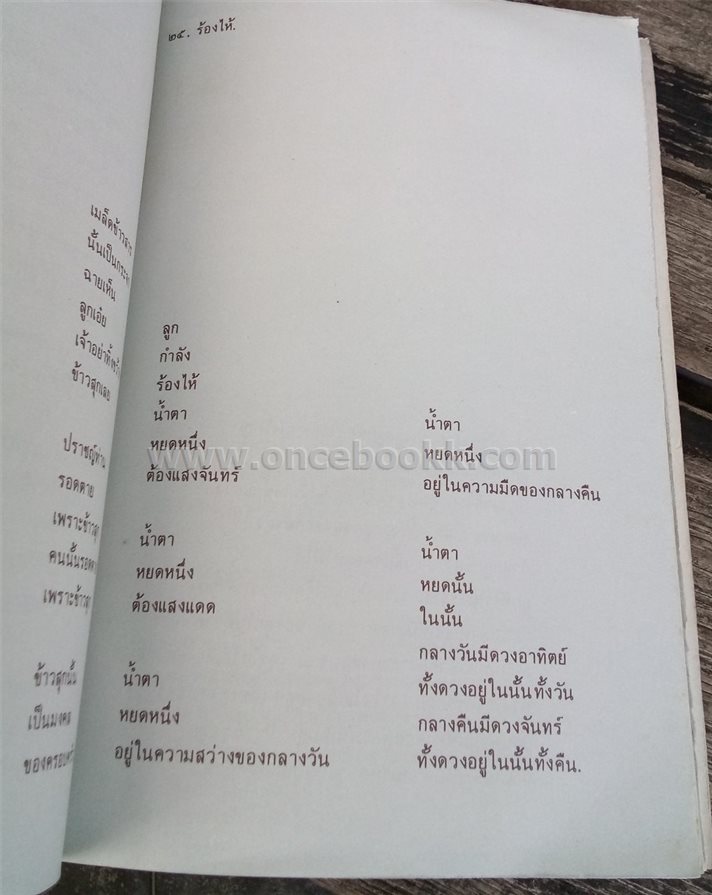 ๒๕. ร้องไห้.
เมล็ดข้าวสาร
นั้นเป็น
ฉายเห็น
ลูกเอ๋ย
เจ้าอย่าทิ้ง
ข้าวสุกเลย
ปราชญ์ท่าน
รอดตาย
เพราะข้าวสุก
คนนั้นรอด
เพราะข้าวสุก
ข้าวสุกนั้น
เป็นมงคล
ของครอบครัว
ลูก
กำลัง
ร้องไห้
น้ำตา
หยดหนึ่ง
ต้องแสงจันทร์
น้ำตา
หยดหนึ่ง
ต้องแสงแดด
น้ำตา
หยดหนึ่ง
อยู่ในความสว่างของกลางวัน
น้ำตา
หยดหนึ่ง
อยู่ในความมืดของกลางคืน
น้ำตา
หยดนั้น
ในนั้น
กลางวันมีดวงอาทิตย์
ทั้งดวงอยู่ในนั้นทั้งวัน
กลางคืนมีดวงจันทร์
ทั้งดวงอยู่ในนั้นทั้งคืน.
www.oncebookk.com